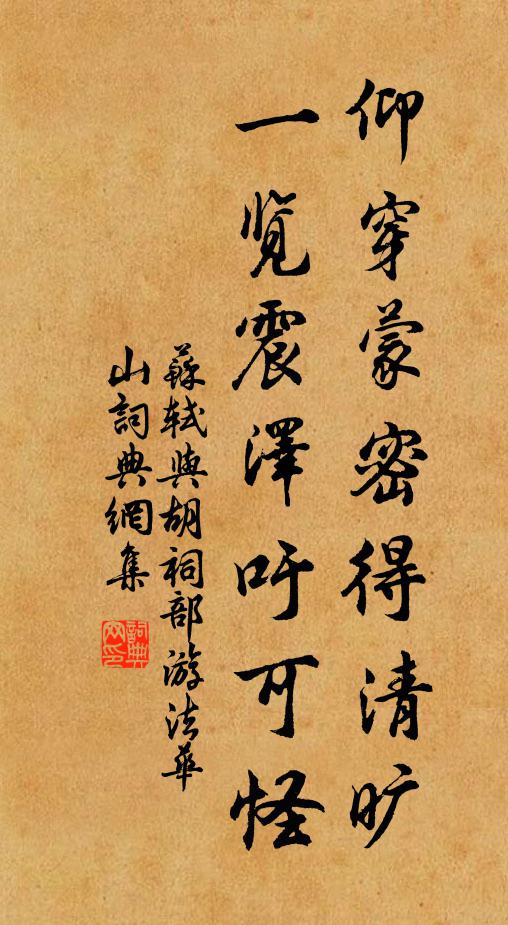 仰穿蒙密得清旷
一览震澤吁可怪
蘇轼與胡祠部游法華
山詞典網集
詞典
网印